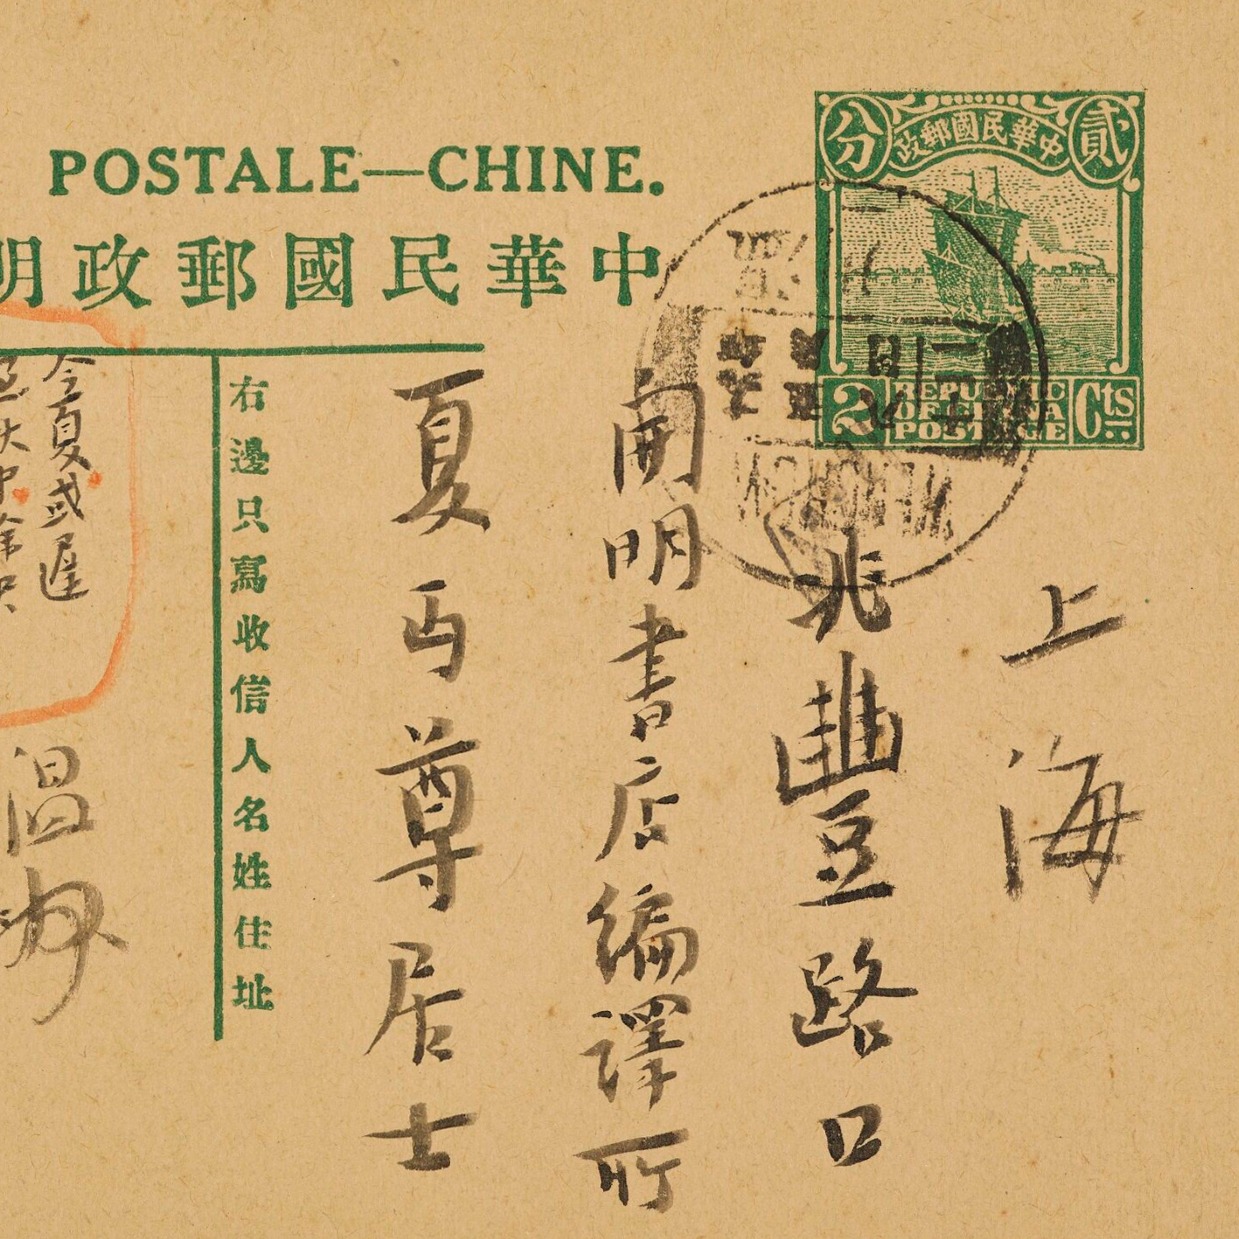 POSTALE—CHINE.
中華民國郵政明
分 中華民國郵政 貳
2 REPUBLIC OF CHINA POSTAGE Cts
WENCHOW
上海
兆豐路口
開明書店編譯所
夏丏尊居士
右邊只寫收信人名姓住址
今夏或遲
温州